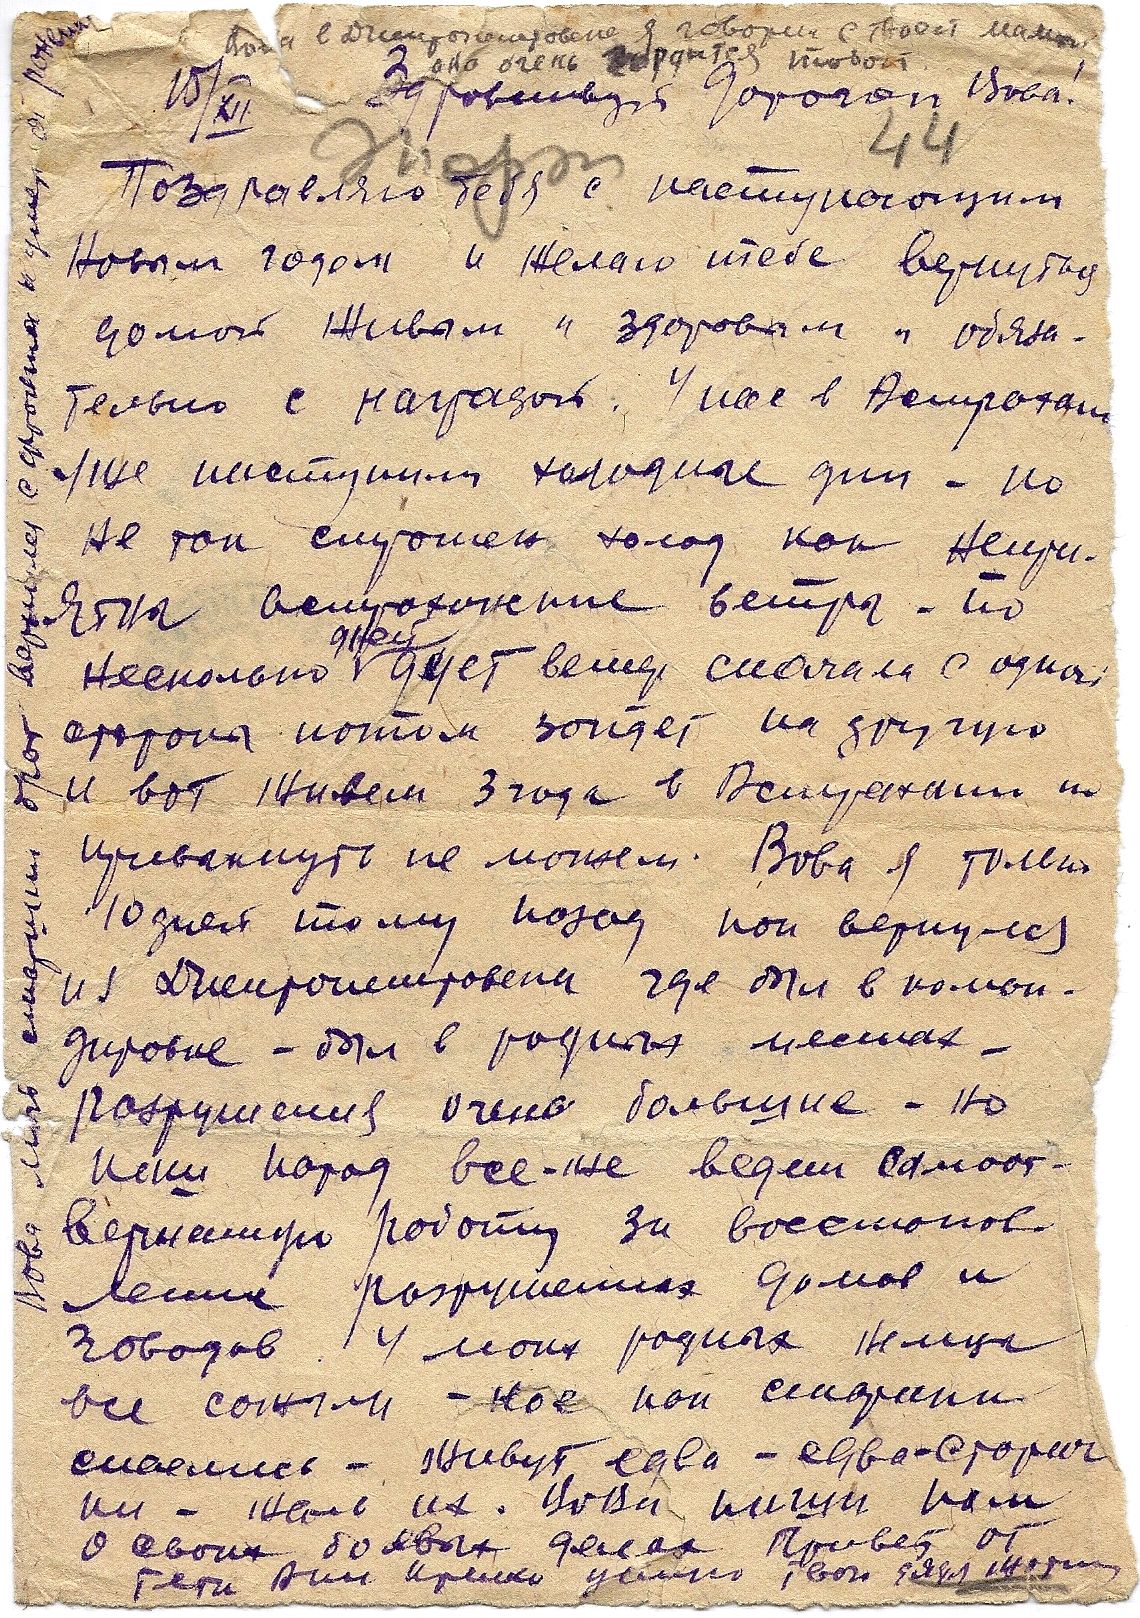 Вова в Днепропетровске я говорил с твоей мамой
она очень гордится тобой
15/XII Здравствуй дорогой Вова!
44
Поздравляю тебя с наступающим
Новым годом и желаю тебе вернуться
домой живым и здоровым и обяза-
тельно с наградой. У нас в Астрахани
уже наступили холодные дни - но
не так страшен холод как непри-
ятны астраханские ветры - по
несколько дней дует ветер сначала с одной
стороны потом зайдет на другую
и вот живем 3 года в Астрахани но
привыкнуть не можем. Вова я только
10 дней тому назад как вернулся
из Днепропетровска где был в коман-
дировке - был в родных местах -
разрушения очень большие - но
наш народ все-же ведет самоот-
верженную работу за восстанов-
ление разрушенных домов и
заводов. У моих родных немцы
все сожгли - кое как старики
спаслись - живут едва - едва - старич
ки - жаль их. Вова пиши нам
о своих боевых делах Привет от
тети Ани целую твой дядя
Вова Мить старший брат вернулся с фронта и умер от